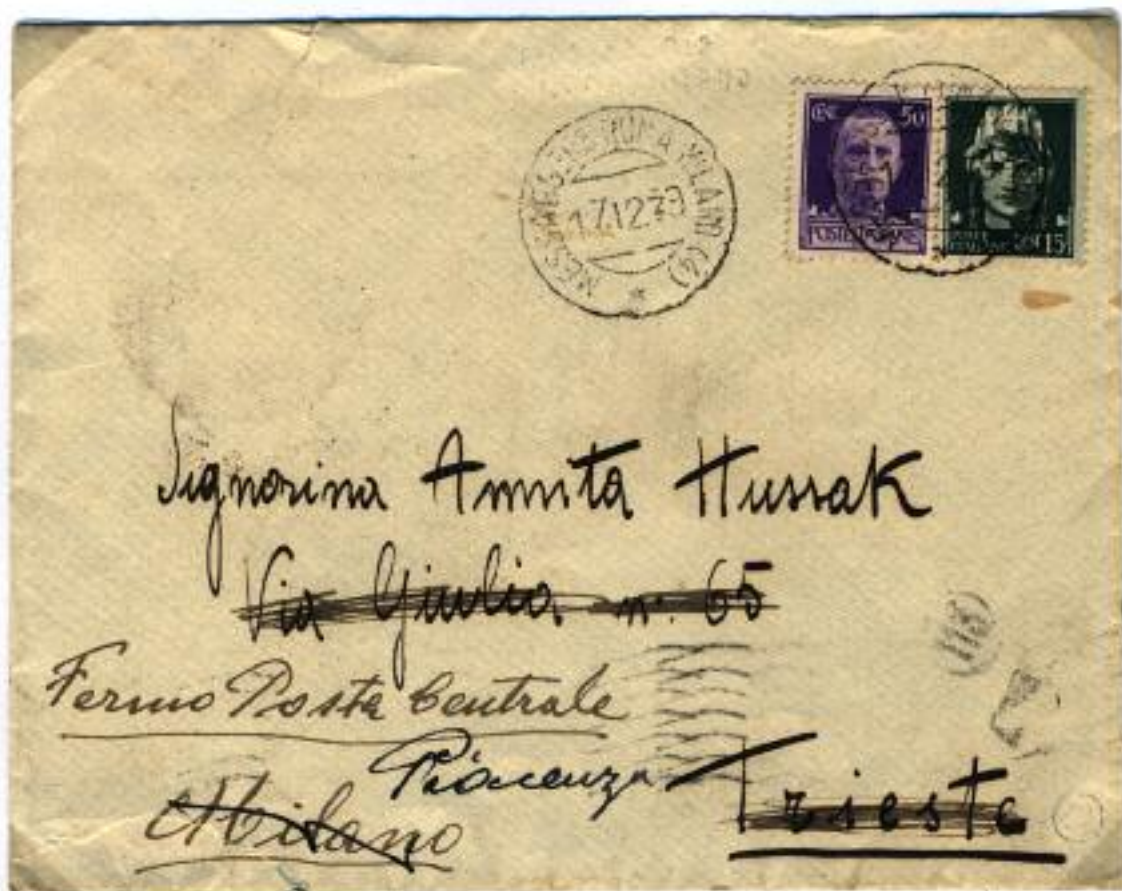 MESSAGGERE ROMA MILANO (2)
17.12.39
CENT. 50
POSTE ITALIANE
CENT 15
Signorina Annita Hussak
Via Giulia n. 65
Fermo Posta Centrale
Piacenza Trieste
Milano